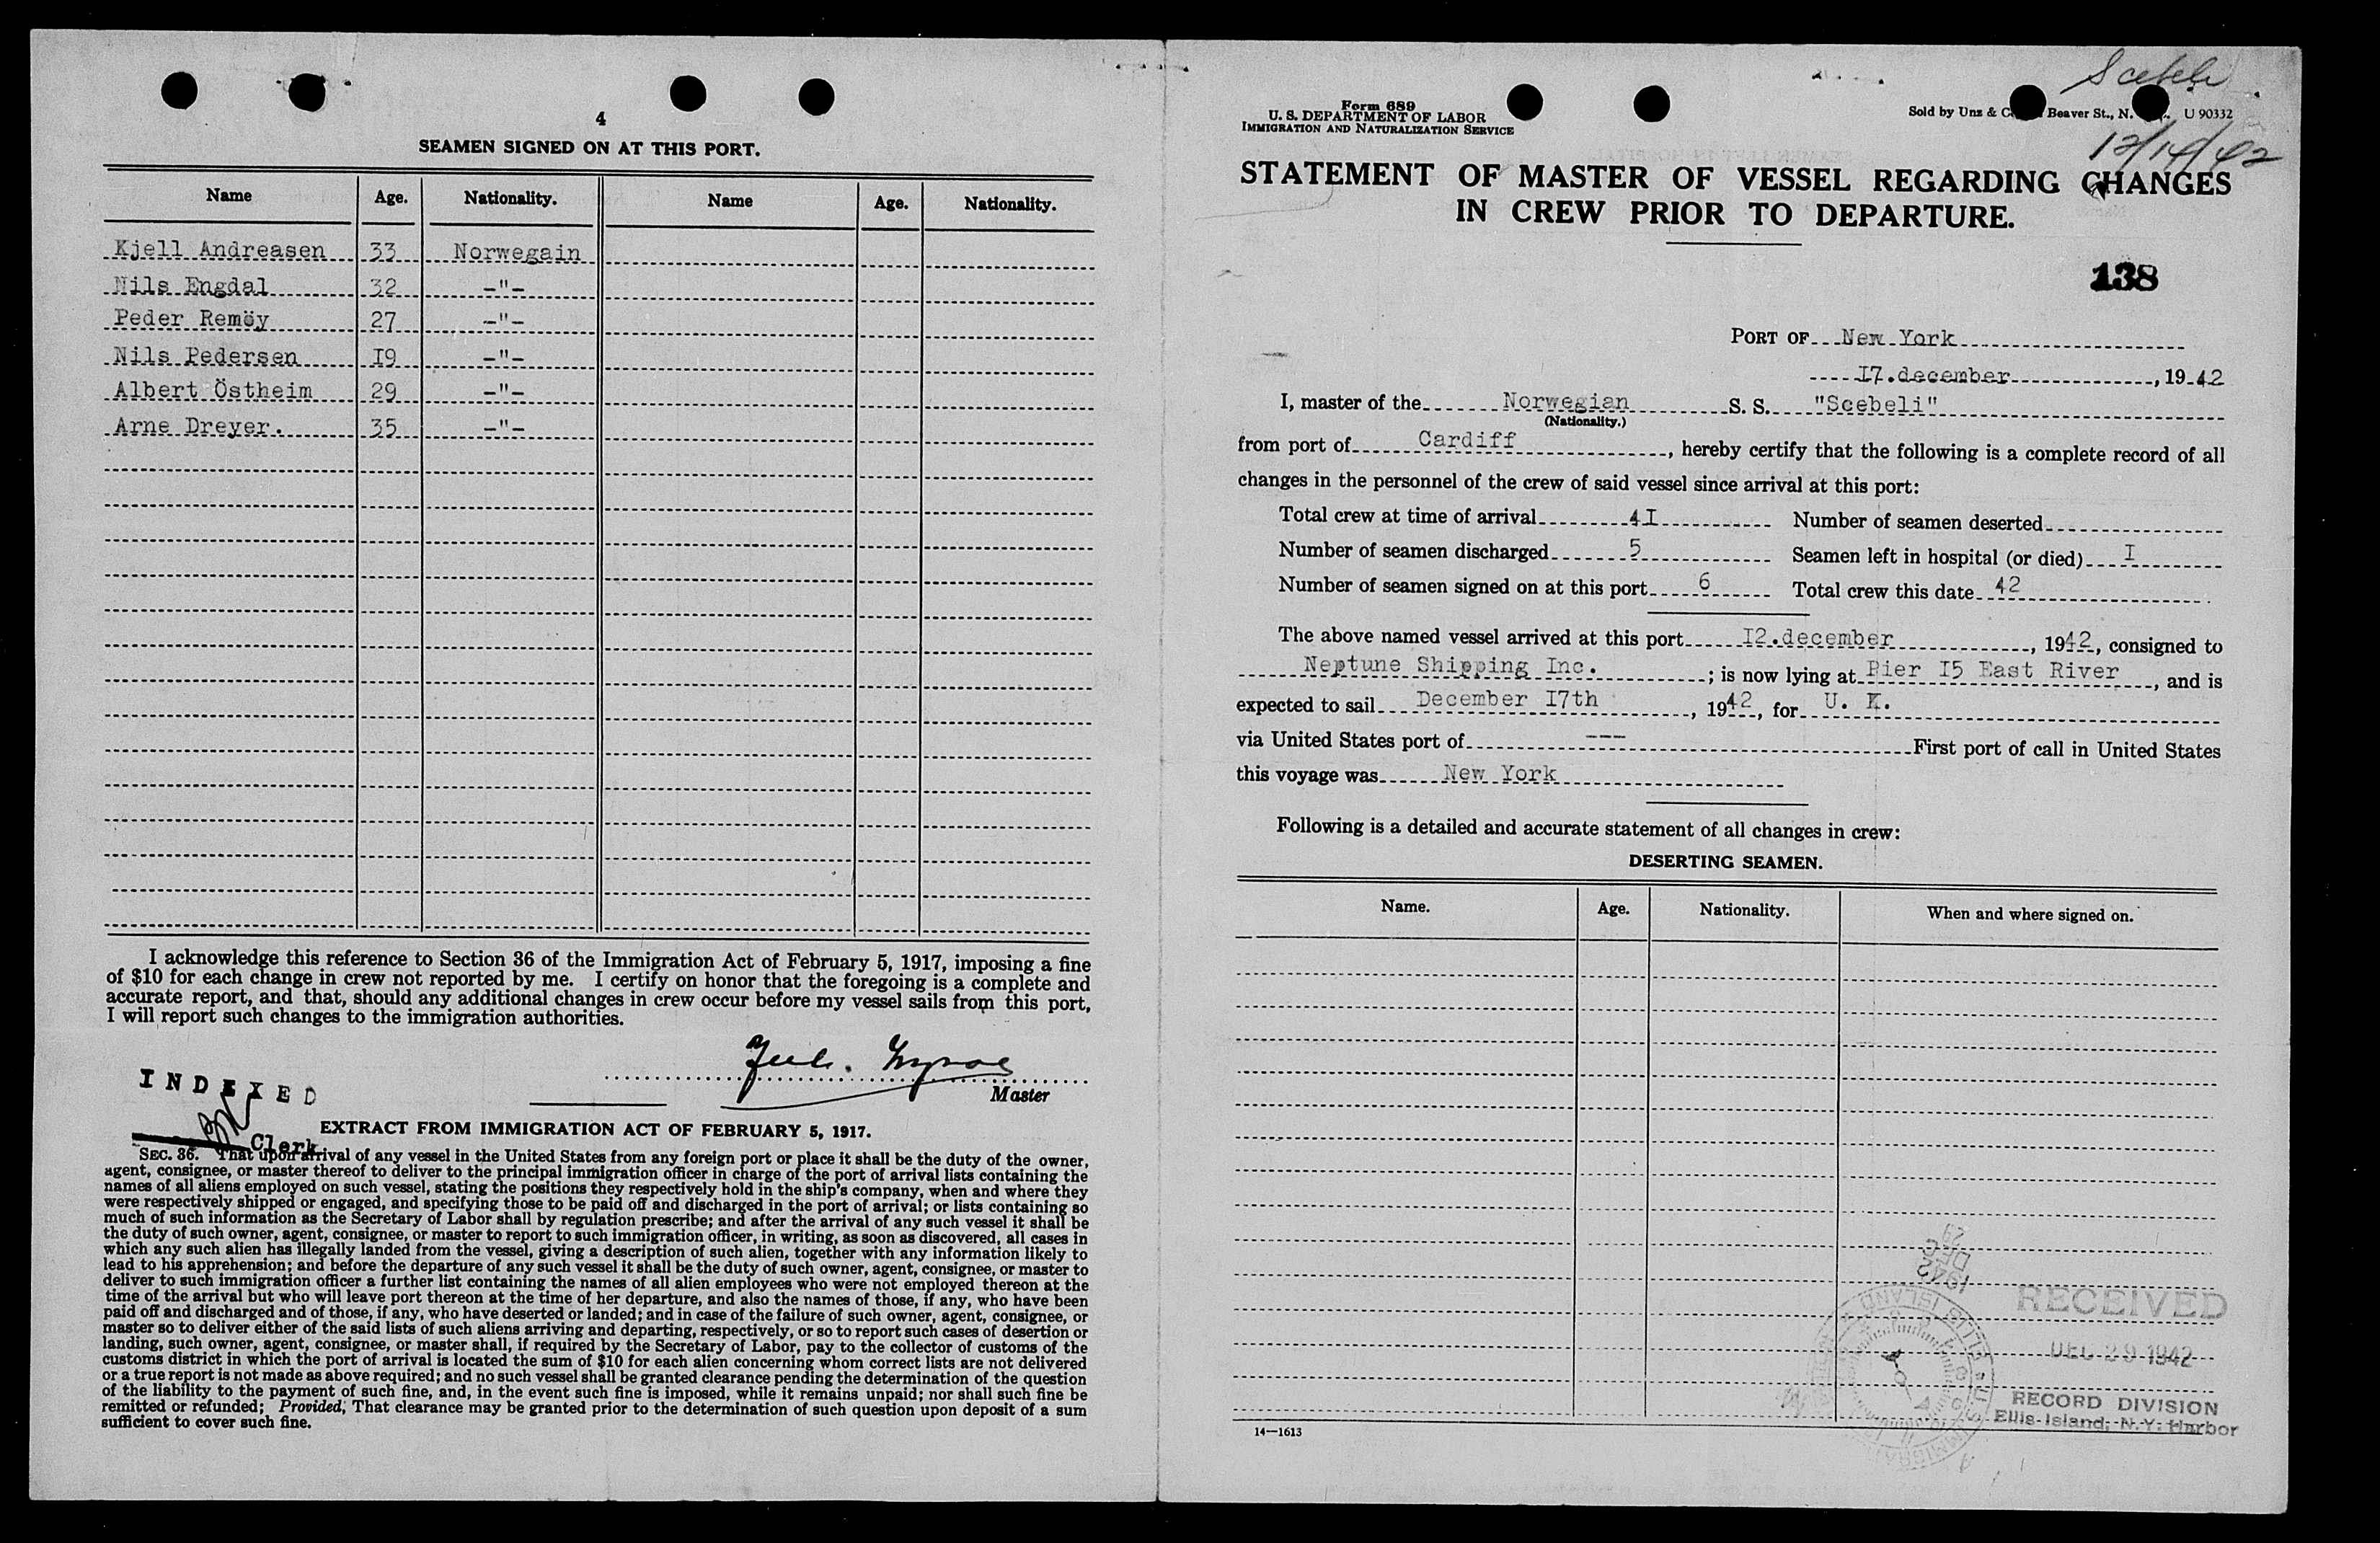 4
SEAMEN SIGNED ON AT THIS PORT.
Name Age. Nationality. Name Age. Nationality.
Kjell Andreasen 33 Norwegain
Nils Engdal 32 -"-
Peder Remöy 27 -"-
Nils Pedersen I9 -"-
Albert Östheim 29 -"-
Arne Dreyer. 35 -"-
I acknowledge this reference to Section 36 of the Immigration Act of February 5, 1917, imposing a fine
of $10 for each change in crew not reported by me. I certify on honor that the foregoing is a complete and
accurate report, and that, should any additional changes in crew occur before my vessel sails from this port,
I will report such changes to the immigration authorities.
Master
INDEXED
Clerk
EXTRACT FROM IMMIGRATION ACT OF FEBRUARY 5, 1917.
SEC. 36. That upon arrival of any vessel in the United States from any foreign port or place it shall be the duty of the owner,
agent, consignee, or master thereof to deliver to the principal immigration officer in charge of the port of arrival lists containing the
names of all aliens employed on such vessel, stating the positions they respectively hold in the ship's company, when and where they
were respectively shipped or engaged, and specifying those to be paid off and discharged in the port of arrival; or lists containing so
much of such information as the Secretary of Labor shall by regulation prescribe; and after the arrival of any such vessel it shall be
the duty of such owner, agent, consignee, or master to report to such immigration officer, in writing, as soon as discovered, all cases in
which any such alien has illegally landed from the vessel, giving a description of such alien, together with any information likely to
lead to his apprehension; and before the departure of any such vessel it shall be the duty of such owner, agent, consignee, or master to
deliver to such immigration officer a further list containing the names of all alien employees who were not employed thereon at the
time of the arrival but who will leave port thereon at the time of her departure, and also the names of those, if any, who have been
paid off and discharged and of those, if any, who have deserted or landed; and in case of the failure of such owner, agent, consignee, or
master so to deliver either of the said lists of such aliens arriving and departing, respectively, or so to report such cases of desertion or
landing, such owner, agent, consignee, or master shall, if required by the Secretary of Labor, pay to the collector of customs of the
customs district in which the port of arrival is located the sum of $10 for each alien concerning whom correct lists are not delivered
or a true report is not made as above required; and no such vessel shall be granted clearance pending the determination of the question
of the liability to the payment of such fine, and, in the event such fine is imposed, while it remains unpaid; nor shall such fine be
remitted or refunded; Provided, That clearance may be granted prior to the determination of such question upon deposit of a sum
sufficient to cover such fine.
Scebeli
12/14/42
Form 689
U. S. DEPARTMENT OF LABOR
IMMIGRATION AND NATURALIZATION SERVICE
Sold by Unz & Beaver St., N. U 90332
STATEMENT OF MASTER OF VESSEL REGARDING CHANGES
IN CREW PRIOR TO DEPARTURE.
138
PORT OF New York
I7.december, 1942
I, master of the Norwegian S. S. "Scebeli"
(Nationality.)
from port of Cardiff, hereby certify that the following is a complete record of all
changes in the personnel of the crew of said vessel since arrival at this port:
Total crew at time of arrival 4I Number of seamen deserted
Number of seamen discharged 5 Seamen left in hospital (or died) I
Number of seamen signed on at this port 6 Total crew this date 42
The above named vessel arrived at this port I2.december, 1942, consigned to
Neptune Shipping Inc.; is now lying at Pier I5 East River, and is
expected to sail December I7th, 1942, for U. K.
via United States port of --- First port of call in United States
this voyage was New York
Following is a detailed and accurate statement of all changes in crew:
DESERTING SEAMEN.
Name. Age. Nationality. When and where signed on.
1942 DEC 29
RECEIVED
DEC 29 1942
RECORD DIVISION
Ellis Island, N.Y. Harbor
14—1613